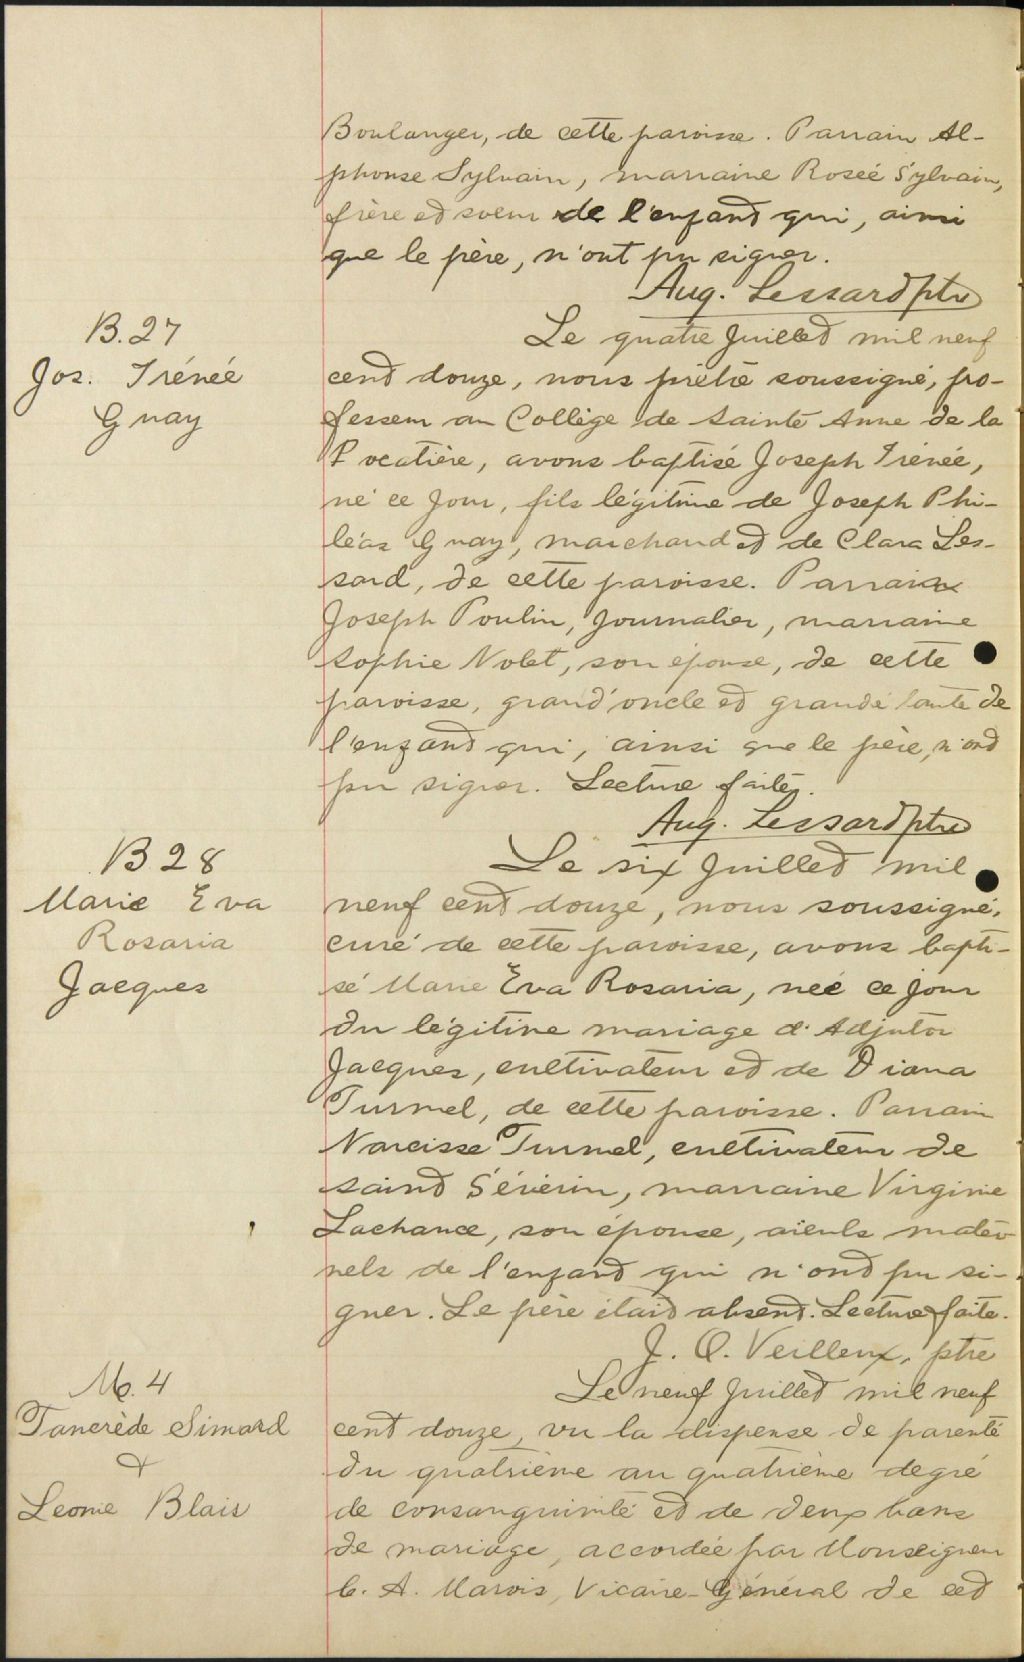 Boulanger, de cette paroisse. Parrain Al-
phonse Sylvain, marraine Roseé Sylvain,
frère et soeur de l'enfant qui, ainsi
que le père, n'ont pu signer.
Aug. Lessard ptre
B.27
Jos. Irénée
Guay
Le quatre Juillet mil neuf
cent douze, nous prêtre soussigné, pro-
fesseur au Collège de Sainte Anne de la
Pocatière, avons baptisé Joseph Irénée,
né ce jour, fils légitime de Joseph Phi-
léas Guay, marchand et de Clara Les-
sard, de cette paroisse. Parrain
Joseph Poulin, Journalier, marraine
Sophie Nolet, son épouse, de cette
paroisse, grand'oncle et grande tante de
l'enfant qui, ainsi que le père, n'ont
pu signer. Lecture faite.
Aug. Lessard ptre
B 28
Marie Eva
Rosaria
Jacques
Le six Juillet mil
neuf cent douze, nous soussigné,
curé de cette paroisse, avons bapti-
sé Marie Eva Rosaria, neé ce jour
du légitime mariage d'Adjutor
Jacques, cultivateur et de Diana
Turmel, de cette paroisse. Parrain
Narcisse Turmel, cultivateur de
Saint Séverin, marraine Virginie
Lachance, son épouse, aïeuls mater
nels de l'enfant qui n'ont pu si-
gner. Le père était absent. Lecture faite.
J. O. Veilleux, ptre
M. 4
Tancrède Simard
&
Leonie Blais
Le neuf Juillet mil neuf
cent douze, vu la dispense de parenté
du quatrième au quatrième degré
de consanguinité et de deux bans
de mariage, accordée par Monseigneur
C. A. Marois, Vicaire-Général de cet